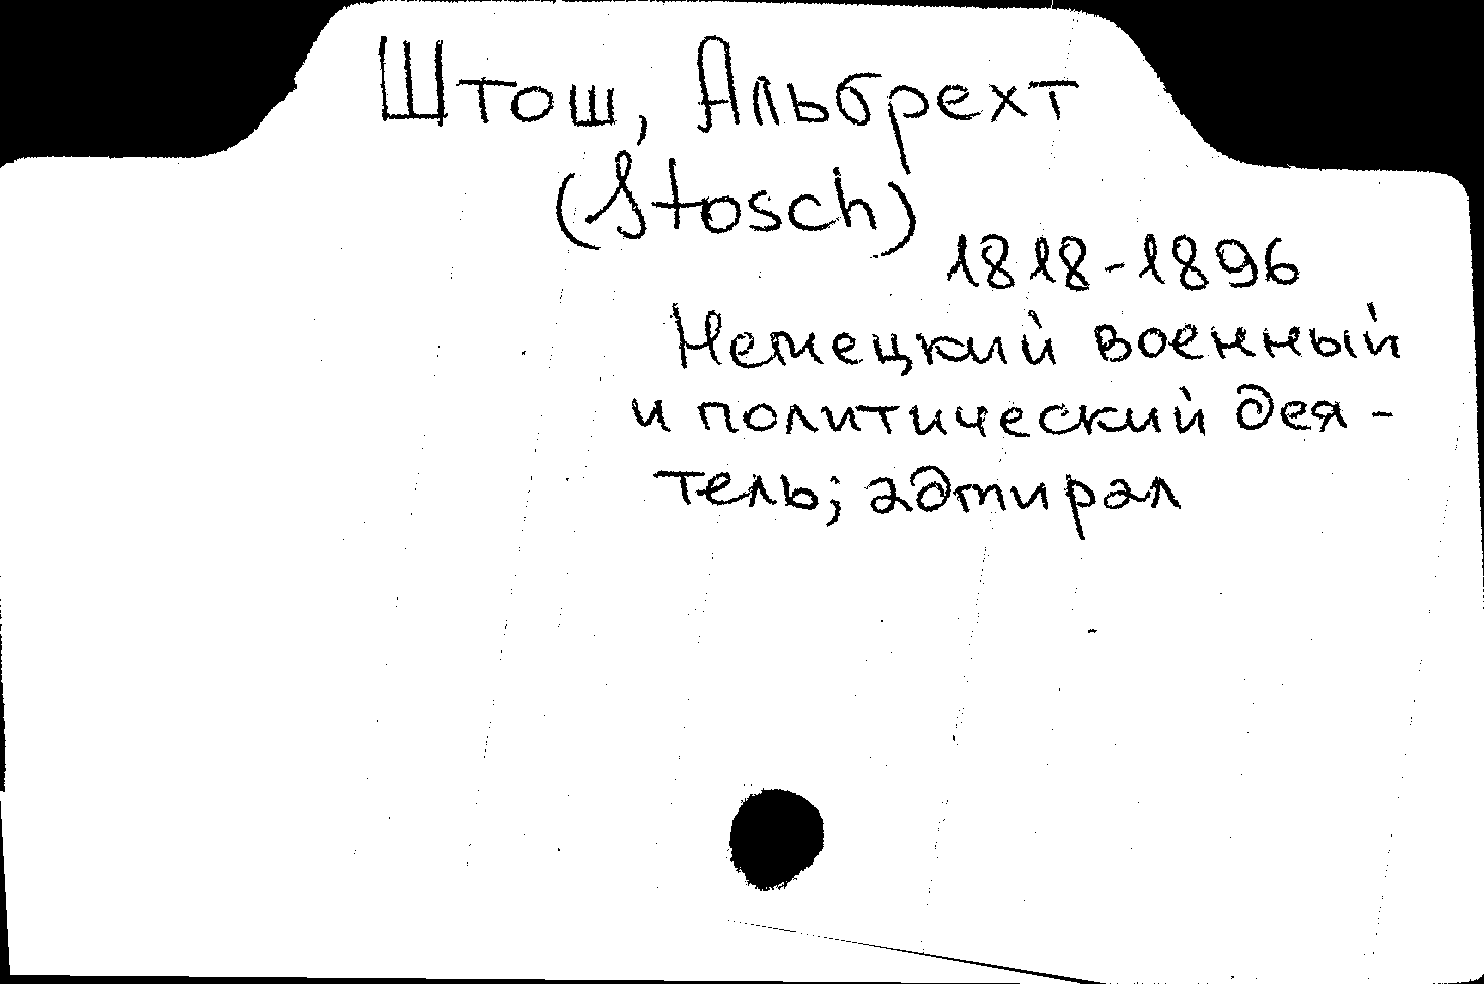 Штош, Альбрехт
(Stosch)
1818-1896
Немецкий военный
и политический дея-
тель; адмирал